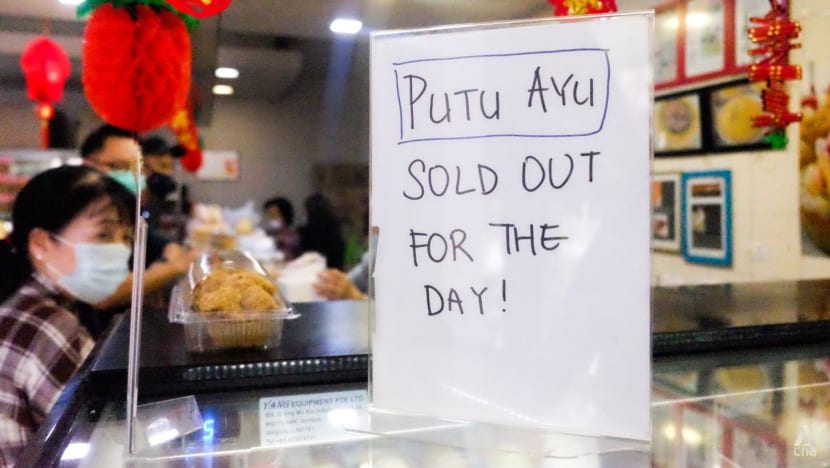 PUTU AYU
SOLD OUT
FOR THE
DAY!
YANG EQUIPMENT PTE LTD
cna